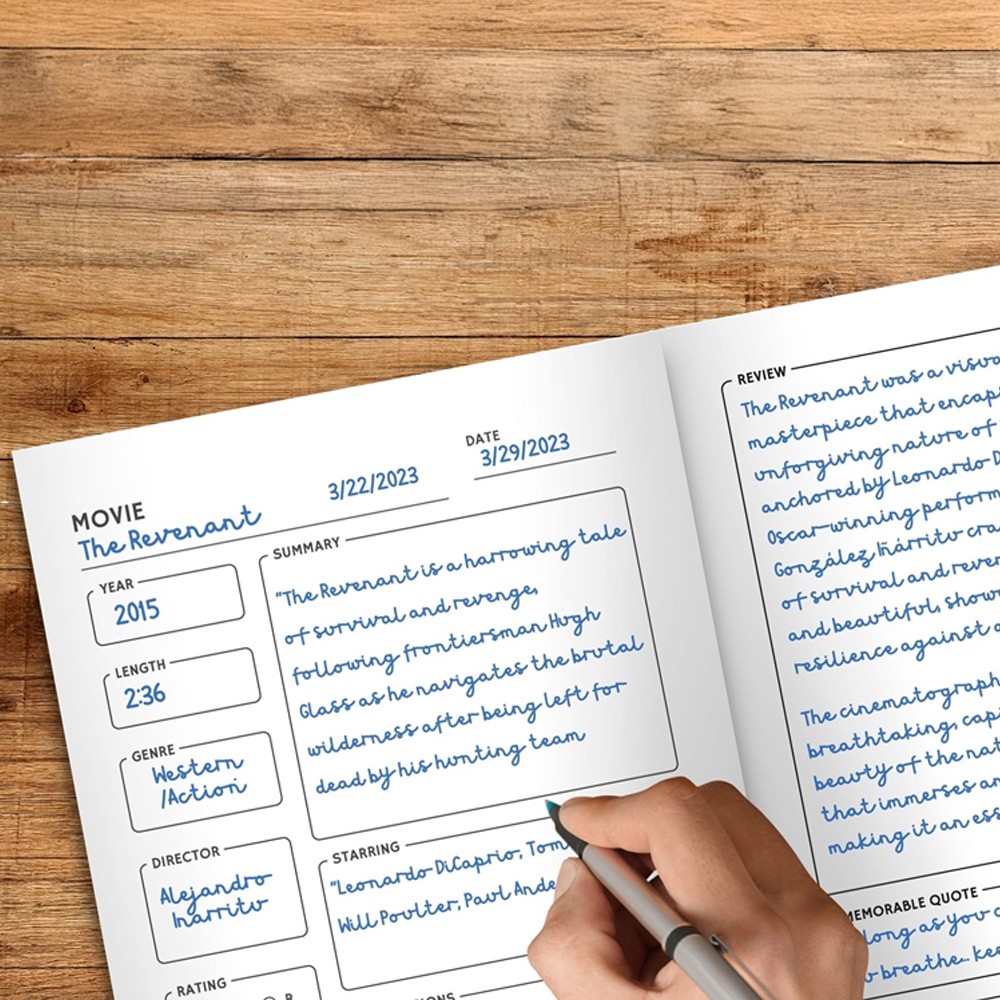 MOVIE
The Revenant
3/22/2023
DATE
3/29/2023
YEAR
2015
LENGTH
2:36
GENRE
Western
/Action
DIRECTOR
Alejandro
Inarritu
RATING
R
SUMMARY
"The Revenant is a harrowing tale
of survival and revenge,
following frontiersman Hugh
Glass as he navigates the brutal
wilderness after being left for
dead by his hunting team
STARRING
"Leonardo DiCaprio, Tom
Will Poulter, Paul Ande
REVIEW
The Revenant was a visua
masterpiece that encap
unforgiving nature of
anchored by Leonardo D
Oscar-winning perform
González Iñárritu cra
of survival and reven
and beautiful, show
resilience against a
The cinematograph
breathtaking, cap
beauty of the nat
that immerses an
making it an ess
MEMORABLE QUOTE
long as you c
breathe... kee